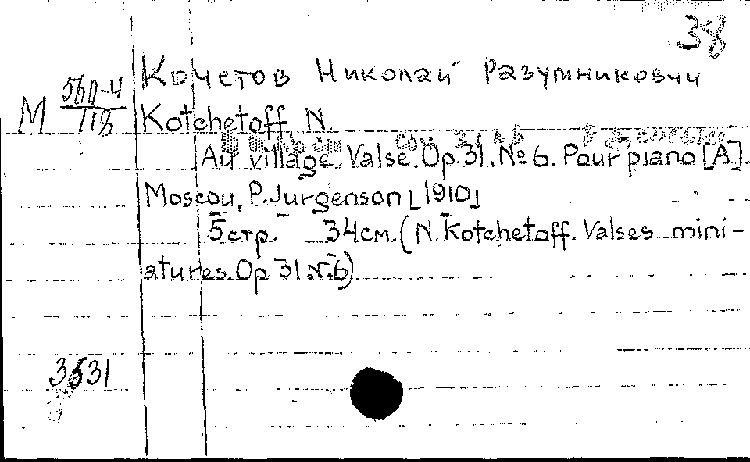 38
Кочетов Николай Разумникович
М 560-4/118
Kotchetoff, N.
Au village. Valse. Op. 31. № 6. Pour piano [A].
Moscou, P. Jurgenson [1910]
5 стр. 34 см. (N. Kotchetoff. Valses mini-
atures. Op 31 N. 6)
3631